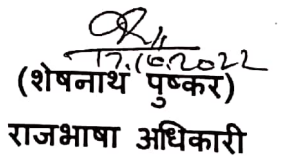 17.10.2022
(शेषनाथ पुष्कर)
राजभाषा अधिकारी